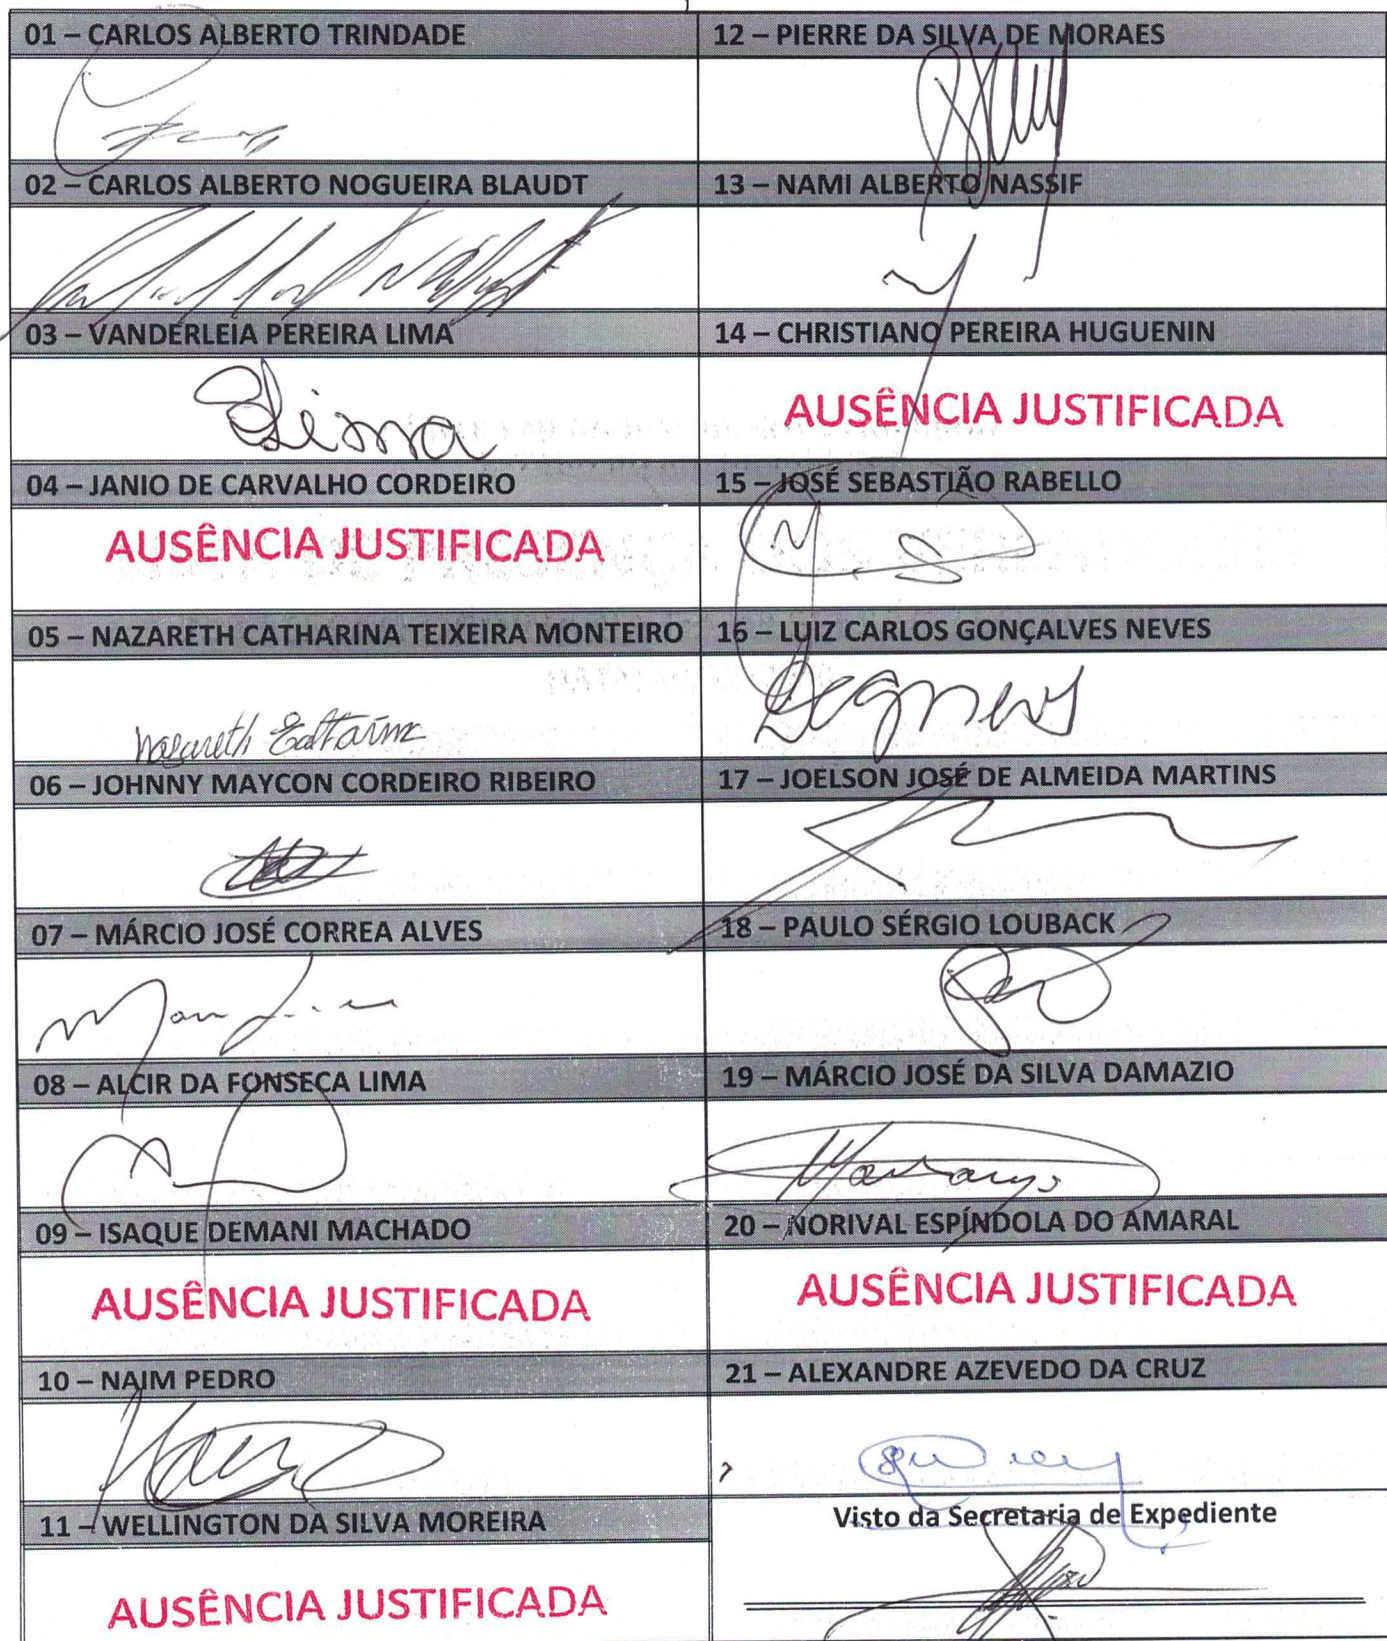 01 – CARLOS ALBERTO TRINDADE
02 – CARLOS ALBERTO NOGUEIRA BLAUDT
03 – VANDERLEIA PEREIRA LIMA
Lima
04 – JANIO DE CARVALHO CORDEIRO
AUSÊNCIA JUSTIFICADA
05 – NAZARETH CATHARINA TEIXEIRA MONTEIRO
06 – JOHNNY MAYCON CORDEIRO RIBEIRO
07 – MÁRCIO JOSÉ CORREA ALVES
08 – ALCIR DA FONSECA LIMA
09 – ISAQUE DEMANI MACHADO
AUSÊNCIA JUSTIFICADA
10 – NAIM PEDRO
11 – WELLINGTON DA SILVA MOREIRA
AUSÊNCIA JUSTIFICADA
12 – PIERRE DA SILVA DE MORAES
13 – NAMI ALBERTO NASSIF
14 – CHRISTIANO PEREIRA HUGUENIN
AUSÊNCIA JUSTIFICADA
15 – JOSÉ SEBASTIÃO RABELLO
16 – LUIZ CARLOS GONÇALVES NEVES
17 – JOELSON JOSÉ DE ALMEIDA MARTINS
18 – PAULO SÉRGIO LOUBACK
19 – MÁRCIO JOSÉ DA SILVA DAMAZIO
20 – NORIVAL ESPÍNDOLA DO AMARAL
AUSÊNCIA JUSTIFICADA
21 – ALEXANDRE AZEVEDO DA CRUZ
Visto da Secretaria de Expediente